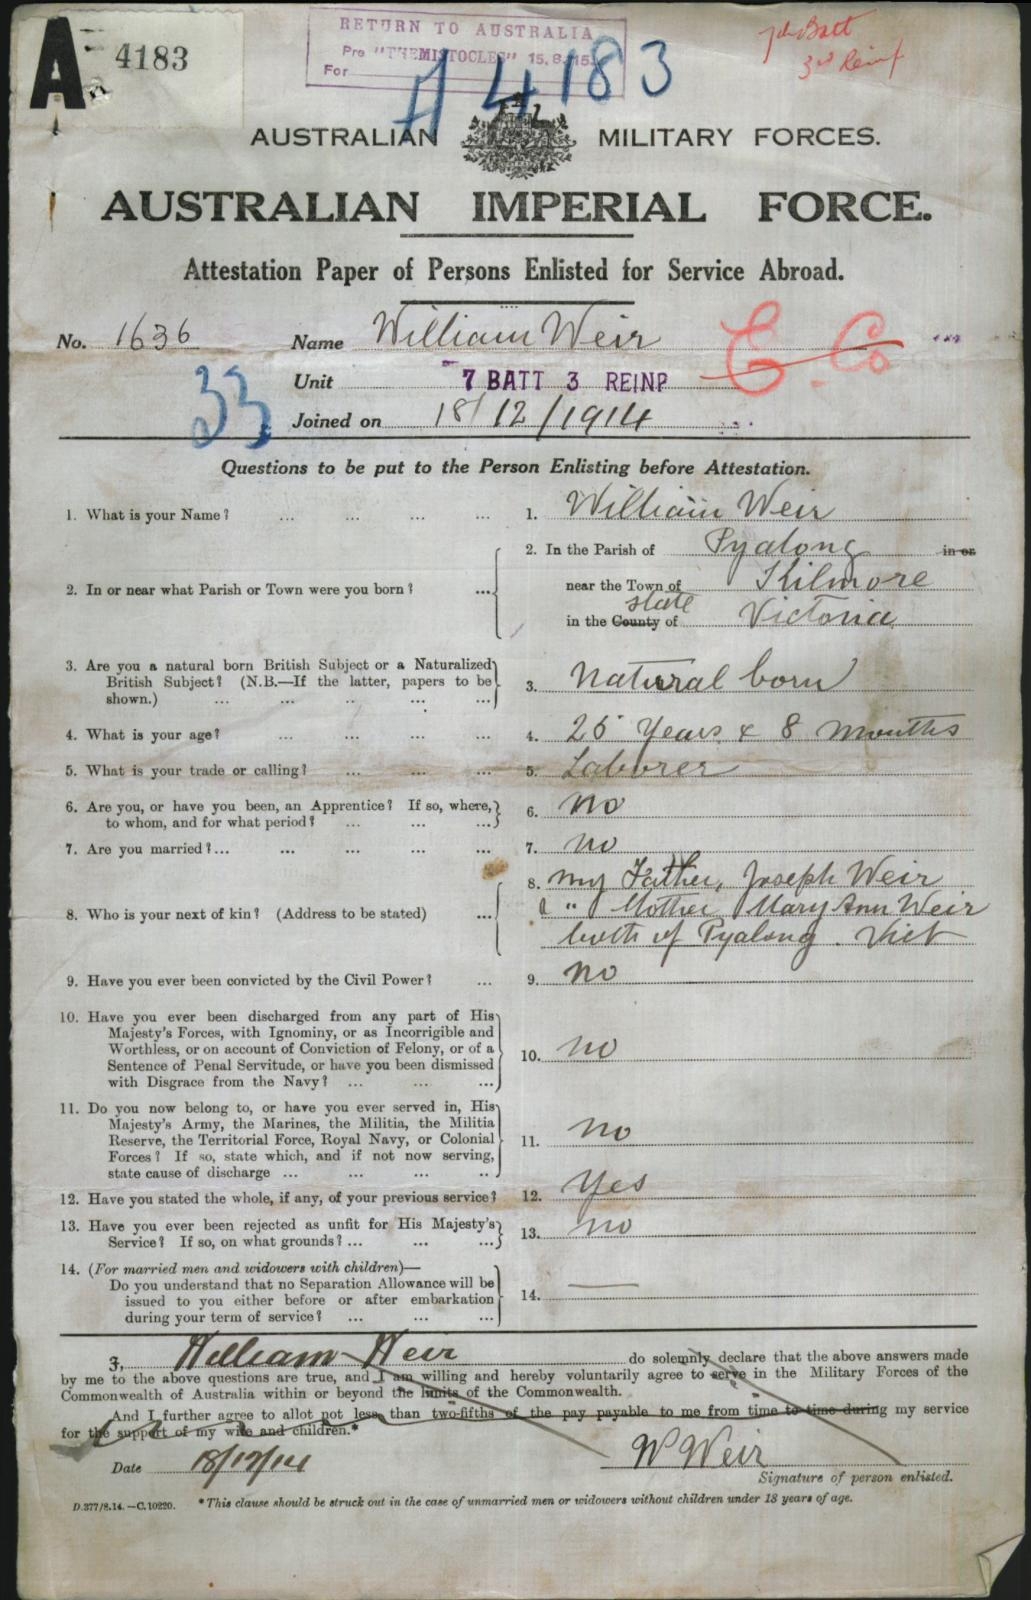 A 4183
RETURN TO AUSTRALIA
Per "THEMISTOCLES" 15.8.15.
For
A 4183
7th Batt
3rd Reinf
AUSTRALIAN MILITARY FORCES.
AUSTRALIAN IMPERIAL FORCE.
Attestation Paper of Persons Enlisted for Service Abroad.
No. 1636 Name William Weir
E. Co
33
Unit 7 BATT 3 REINF
Joined on 18/12/1914
Questions to be put to the Person Enlisting before Attestation.
1. What is your Name? ... ... ... ... 1. William Weir
2. In or near what Parish or Town were you born? ... 2. In the Parish of Pyalong in or
near the Town of Kilmore
in the County of state Victoria
3. Are you a natural born British Subject or a Naturalized
British Subject? (N.B.—If the latter, papers to be
shown.) ... ... .. ... ... 3. Natural born
4. What is your age? ... ... ... ... 4. 25 Years & 8 months
5. What is your trade or calling? ... ... ... 5. Laborer
6. Are you, or have you been, an Apprentice? If so, where,
to whom, and for what period? ... ... ... 6. no
7. Are you married? ... ... ... ... ... 7. no
8. Who is your next of kin? (Address to be stated) ... 8. my Father, Joseph Weir
& " Mother Mary Ann Weir
both of Pyalong. Vict
9. Have you ever been convicted by the Civil Power? ... 9. no
10. Have you ever been discharged from any part of His
Majesty's Forces, with Ignominy, or as Incorrigible and
Worthless, or on account of Conviction of Felony, or of a
Sentence of Penal Servitude, or have you been dismissed
with Disgrace from the Navy? ... ... ... 10. no
11. Do you now belong to, or have you ever served in, His
Majesty's Army, the Marines, the Militia, the Militia
Reserve, the Territorial Force, Royal Navy, or Colonial
Forces? If so, state which, and if not now serving,
state cause of discharge ... ... ... .. 11. no
12. Have you stated the whole, if any, of your previous service? 12. Yes
13. Have you ever been rejected as unfit for His Majesty's
Service? If so, on what grounds? ... ... ... 13. no
14. (For married men and widowers with children)—
Do you understand that no Separation Allowance will be
issued to you either before or after embarkation
during your term of service? ... ... ... 14. —
I, William Weir do solemnly declare that the above answers made
by me to the above questions are true, and I am willing and hereby voluntarily agree to serve in the Military Forces of the
Commonwealth of Australia within or beyond the limits of the Commonwealth.
And I further agree to allot not less than two-fifths of the pay payable to me from time to time during my service
for the support of my wife and children.*
Date 18/12/14 W Weir
Signature of person enlisted.
D.377/8.14.—C.10220. *This clause should be struck out in the case of unmarried men or widowers without children under 18 years of age.